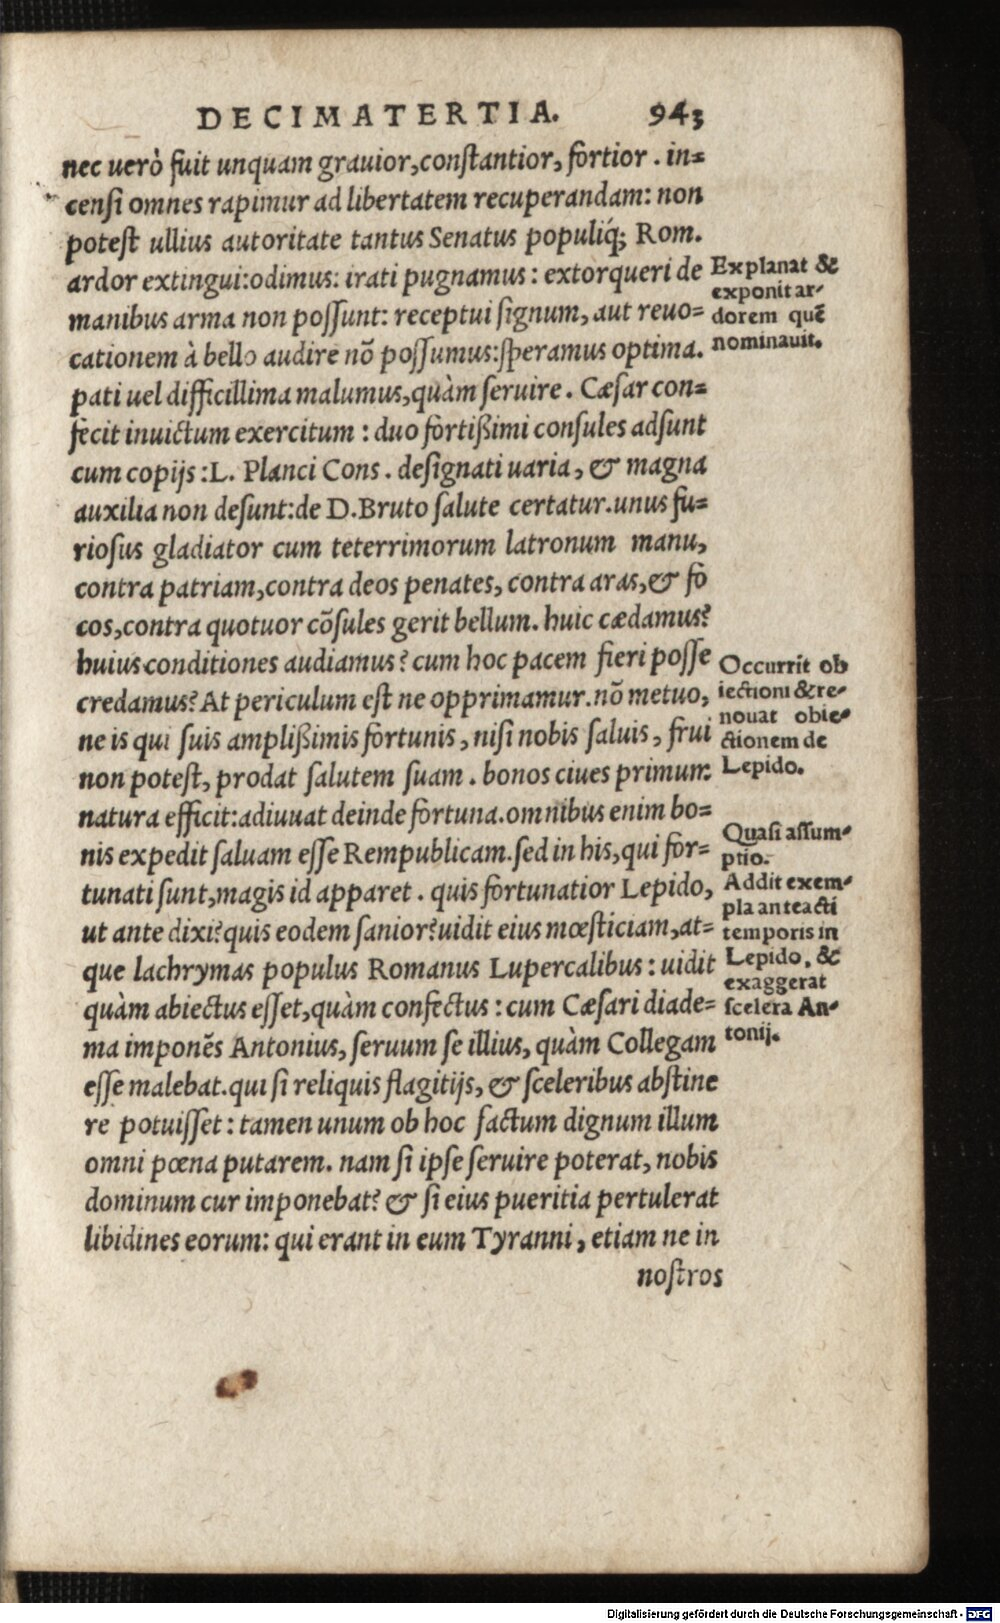 DECIMATERTIA. 943
nec uerò fuit unquam grauior, constantior, fortior. in=
censi omnes rapimur ad libertatem recuperandam: non
potest ullius autoritate tantus Senatus populiq́; Rom.
ardor extingui: odimus: irati pugnamus: extorqueri de
manibus arma non possunt: receptui signum, aut reuo=
cationem à bello audire nõ possumus: speramus optima.
pati uel difficillima malumus, quàm seruire. Cæsar con=
fecit inuictum exercitum: duo fortißimi consules adsunt
cum copijs: L. Planci Cons. designati uaria, & magna
auxilia non desunt: de D. Bruto salute certatur. unus fu=
riosus gladiator cum teterrimorum latronum manu,
contra patriam, contra deos penates, contra aras, & fo
cos, contra quotuor cõsules gerit bellum. huic cædamus?
huius conditiones audiamus? cum hoc pacem fieri posse
credamus? At periculum est ne opprimamur. nõ metuo,
ne is qui suis amplißimis fortunis, nisi nobis saluis, frui
non potest, prodat salutem suam. bonos ciues primum
natura efficit: adiuuat deinde fortuna. omnibus enim bo=
nis expedit saluam esse Rempublicam. sed in his, qui for=
tunati sunt, magis id apparet. quis fortunatior Lepido,
ut ante dixi? quis eodem sanior? uidit eius mœsticiam, at=
que lachrymas populus Romanus Lupercalibus: uidit
quàm abiectus esset, quàm confectus: cum Cæsari diade=
ma imponẽs Antonius, seruum se illius, quàm Collegam
esse malebat. qui si reliquis flagitijs, & sceleribus abstine
re potuisset: tamen unum ob hoc factum dignum illum
omni pœna putarem. nam si ipse seruire poterat, nobis
dominum cur imponebat? & si eius pueritia pertulerat
libidines eorum: qui erant in eum Tyranni, etiam ne in
nostros
Explanat &
exponit ar-
dorem quẽ
nominauit.
Occurrit ob
iectioni & re-
nouat obie-
ctionem de
Lepido.
Quasi assum-
ptio.
Addit exem-
pla anteacti
temporis in
Lepido, &
exaggerat
scelera An-
tonij.
Digitalisierung gefördert durch die Deutsche Forschungsgemeinschaft - DFG